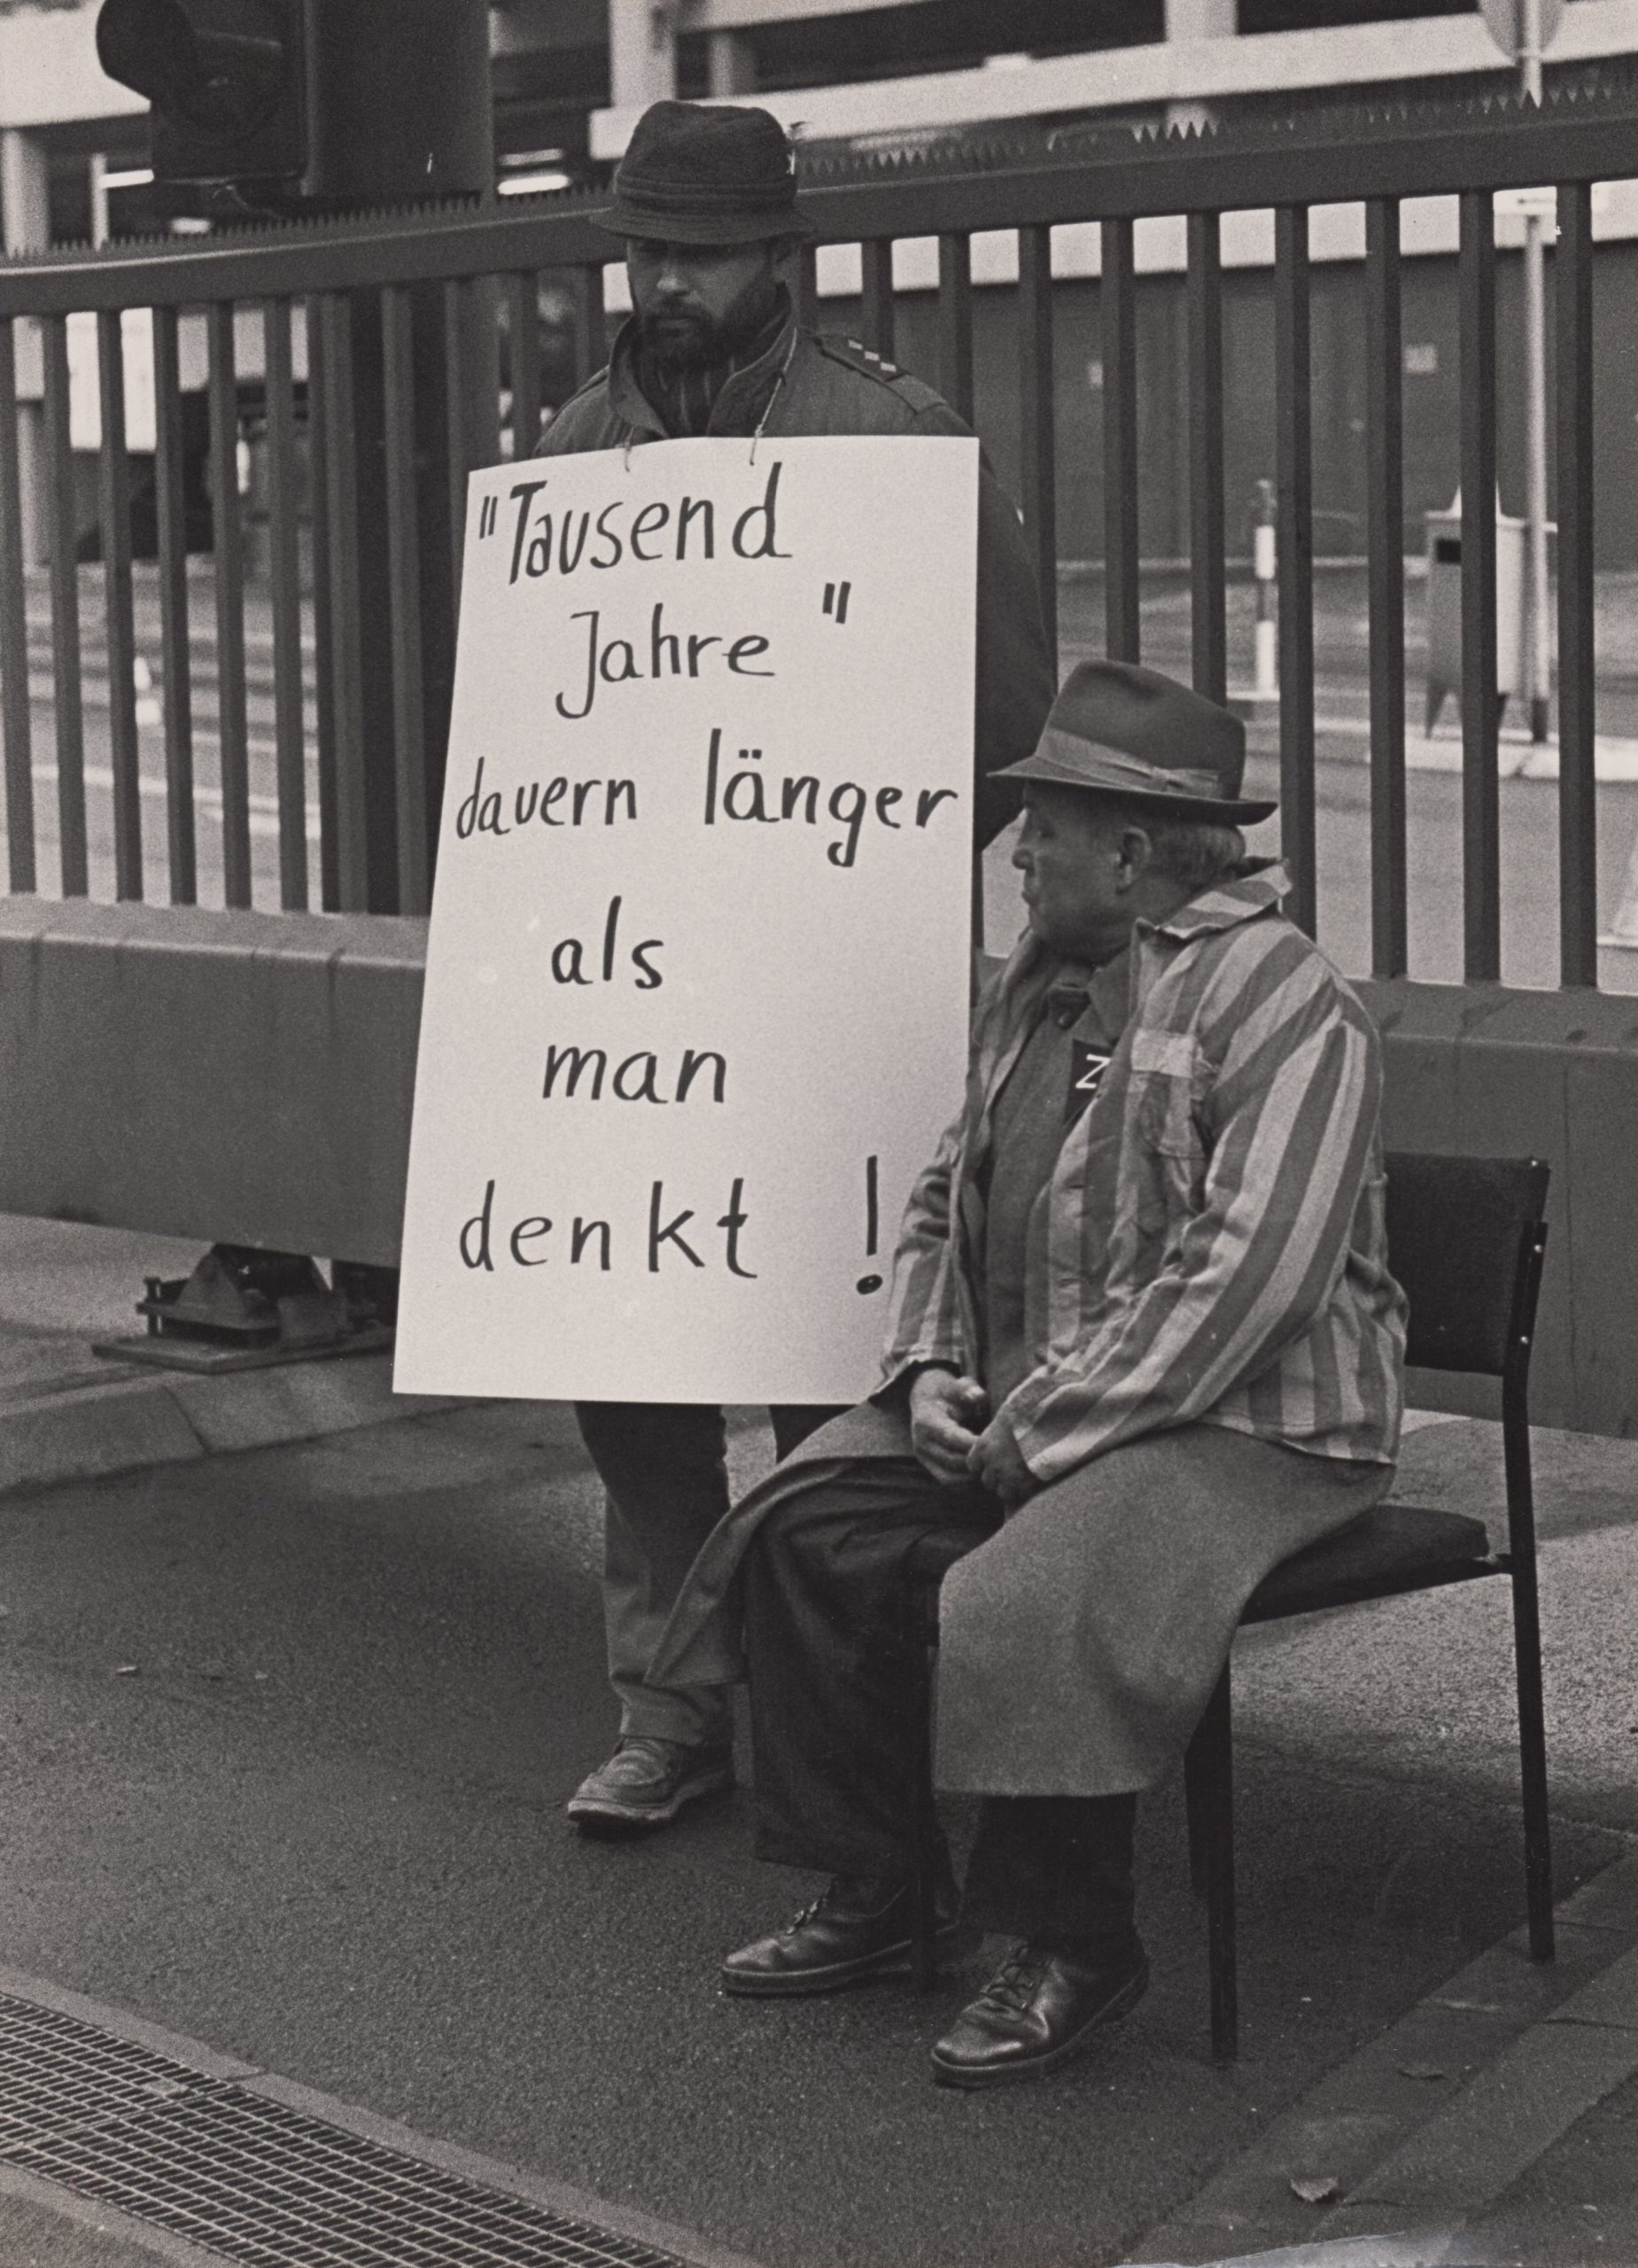 "Tausend
Jahre"
dauern länger
als
man
denkt !
Z